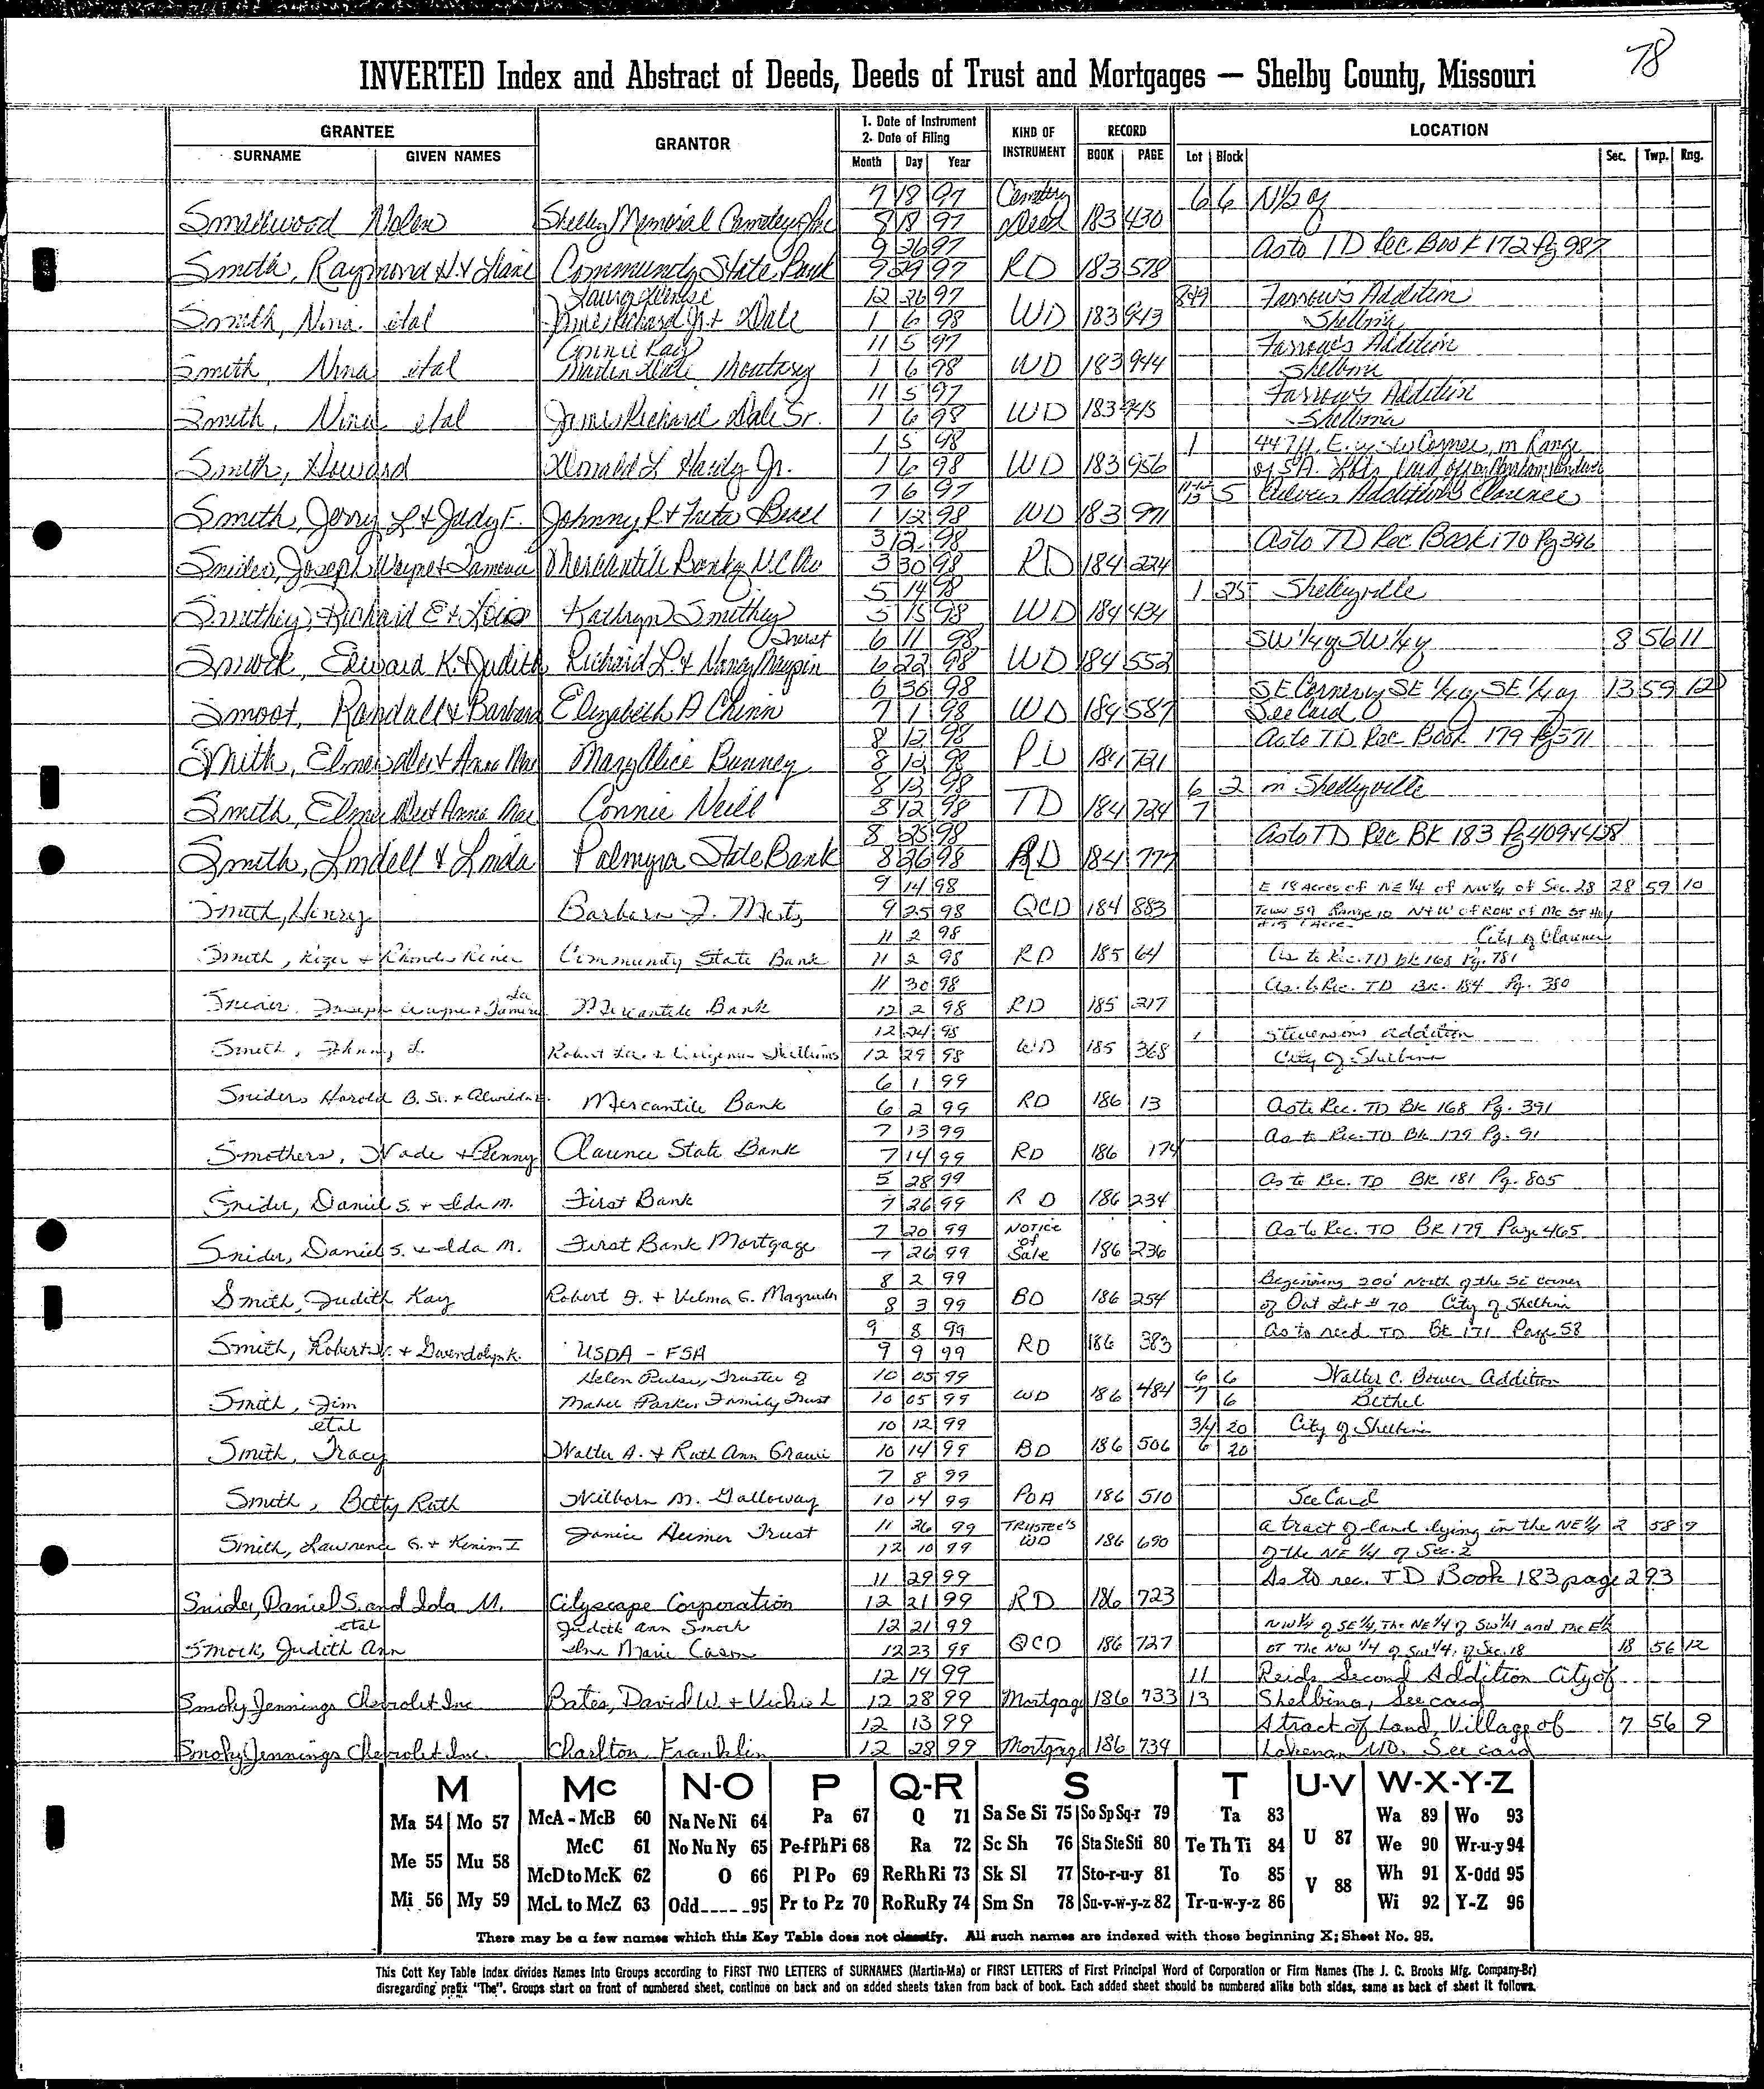 78
INVERTED Index and Abstract of Deeds, Deeds of Trust and Mortgages — Shelby County, Missouri
GRANTEE GRANTOR 1. Date of Instrument 2. Date of Filing KIND OF INSTRUMENT RECORD LOCATION
SURNAME GIVEN NAMES Month Day Year BOOK PAGE Lot Block Sec. Twp. Rng.
7 18 97 Cemetery 6 6 N 1/2 of
Smallwood Nolen Shelby Memorial Cemetery Inc 8 18 97 Deed 183 430
9 26 97 As to TD Rec Book 172 Pg 987
Smith, Raymond Community State Bank 9 29 97 RD 183 578
12 26 97 Farrow's Addition
Smith, Nina etal James Richard Jr. + Dale 1 6 98 WD 183 943 Shelbina
Connie Kay 11 5 97 Farrow's Addition
Smith, Nina etal 1 6 98 WD 183 944 Shelbina
11 5 97 Farrow's Addition
Smith, Nina etal James Richard Dale Sr. 1 6 98 WD 183 945 Shelbina
1 5 98 1 447 ft. E. of SW Corner, in Range
Smith, Howard Donald L Hardy Jr. 1 6 98 WD 183 956
7 6 97 5 Addition Clarence
Smith, Jerry L + Judy F. Johnny R + 1 12 98 WD 183 971
3 12 98 As to TD Rec Book 170 Pg 396
Snider, Joseph Wayne + Mercantile Bank of 3 30 98 RD 184 224
5 14 98 1 25 Shelbyville
Smithey, Richard E + Lois Kathryn Smithey 5 15 98 WD 184 434
Trust 6 11 98 SW 1/4 of SW 1/4 of 8 56 11
Smock, Edward K. + Judith Richard L. + Nancy Maupin 6 22 98 WD 184 552
6 30 98 SE Corner of SE 1/4 of SE 1/4 of 13 59 12
Smoot, Randall + Barbara Elizabeth A Chinn 7 1 98 WD 184 587 See Card
8 12 98 As to TD Rec Book 179 Pg 371
Smith, Elmer Dee + Anna Mae Mary Alice Bunney 8 12 98 184 721
8 12 98 6 2 in Shelbyville
Smith, Elmer Dee + Anna Mae Connie Neill 8 12 98 TD 184 724 7
8 25 98 As to TD Rec BK 183 Pg 409 + 428
Smith, Lindell + Linda Palmyra State Bank 8 26 98 RD 184 777
9 14 98 E 18 Acres of NE 1/4 of NW 1/4 of Sec. 28 28 59 10
Smith, Henry Barbara J. 9 25 98 QCD 184 883 Town 59 Range 10 N+W of ROW of Mo St Hwy
11 2 98 City of Clarence
Smith, Community State Bank 11 2 98 RD 185 64 As to Rec. TD BK 168 Pg. 781
11 30 98 As to Rec. TD BK. 184 Pg. 380
Snider, Joseph Wayne + Mercantile Bank 12 2 98 RD 185 217
12 24 98 1 Stevensons Addition
Smith, Johnny L. Robert Lee + 12 29 98 WD 185 368 City of Shelbina
6 1 99
Sniders Harold B. Sr. + Mercantile Bank 6 2 99 RD 186 13 As to Rec. TD BK 168 Pg. 391
7 13 99 As to Rec. TD BK 179 Pg. 91
Smothers, Wade + Penny Clarence State Bank 7 14 99 RD 186 174
5 28 99 As to Rec. TD BK 181 Pg. 805
Snider, Daniel S. + Ida M. First Bank 7 26 99 RD 186 234
7 20 99 NOTICE of As to Rec. TD BK 179 Page 465
Snider, Daniel S. + Ida M. First Bank Mortgage 7 26 99 Sale 186 236
8 2 99 Beginning 200' North of the SE corner
Smith, Judith Kay Robert J. + Velma G. Magruder 8 3 99 BD 186 254 of Out Lot # 70 City of Shelbina
9 8 99 As to recd TD BK 171 Page 58
Smith, Robert W. + Gwendolyn K. USDA - FSA 9 9 99 RD 186 383
Helen Pulse, Trustee of 10 05 99 6 6 Walter C. Bower Addition
Smith, Jim Mabel Parker Family Trust 10 05 99 WD 186 484 7 6 Bethel
etal 10 12 99 3/4 20 City of Shelbina
Smith, Tracy Walter A. + Ruth Ann 10 14 99 BD 186 506 6 20
7 8 99
Smith, Betty Ruth Wilborn M. Galloway 10 14 99 POA 186 510 See Card
11 26 99 TRUSTEE'S A tract of land lying in the NE 1/4 2 58 9
Smith, Lawrence G. + Janice Heimer Trust 12 10 99 WD 186 690 of the NE 1/4 of Sec. 2
11 29 99 As to rec. TD Book 183 page 293
Snider, Daniel S. and Ida M. Cityscape Corporation 12 21 99 RD 186 723
etal Judith Ann Smock 12 21 99 NW 1/4 of SE 1/4, The NE 1/4 of SW 1/4 and the E 1/2
Smock, Judith Ann Marie Cason 12 23 99 QCD 186 727 of The NW 1/4 of SW 1/4 of Sec. 18 18 56 12
12 14 99 11 Reids Second Addition City of
Smoky Jennings Chevrolet Inc Bates, David W. + Vickie L 12 28 99 Mortgage 186 733 13 Shelbina, See card
12 13 99 A tract of Land, Village of 7 56 9
Smoky Jennings Chevrolet Inc. Charlton Franklin 12 28 99 Mortgage 186 734 Lakenan MO. See card
M Mc N-O P Q-R S T U-V W-X-Y-Z
Ma 54 Mo 57 McA - McB 60 Na Ne Ni 64 Pa 67 Q 71 Sa Se Si 75 So Sp Sq-r 79 Ta 83 Wa 89 Wo 93
McC 61 No Nu Ny 65 Pe-f Ph Pi 68 Ra 72 Sc Sh 76 Sta Ste Sti 80 Te Th Ti 84 U 87 We 90 Wr-u-y 94
Me 55 Mu 58 McD to McK 62 O 66 Pl Po 69 Re Rh Ri 73 Sk Sl 77 Sto-r-u-y 81 To 85 V 88 Wh 91 X-Odd 95
Mi 56 My 59 McL to McZ 63 Odd-----95 Pr to Pz 70 Ro Ru Ry 74 Sm Sn 78 Su-v-w-y-z 82 Tr-u-w-y-z 86 Wi 92 Y-Z 96
There may be a few names which this Key Table does not classify. All such names are indexed with those beginning X; Sheet No. 95.
This Cott Key Table Index divides Names Into Groups according to FIRST TWO LETTERS of SURNAMES (Martin-Ma) or FIRST LETTERS of First Principal Word of Corporation or Firm Names (The J. C. Brooks Mfg. Company-Br)
disregarding prefix "The". Groups start on front of numbered sheet, continue on back and on added sheets taken from back of book. Each added sheet should be numbered alike both sides, same as back of sheet it follows.